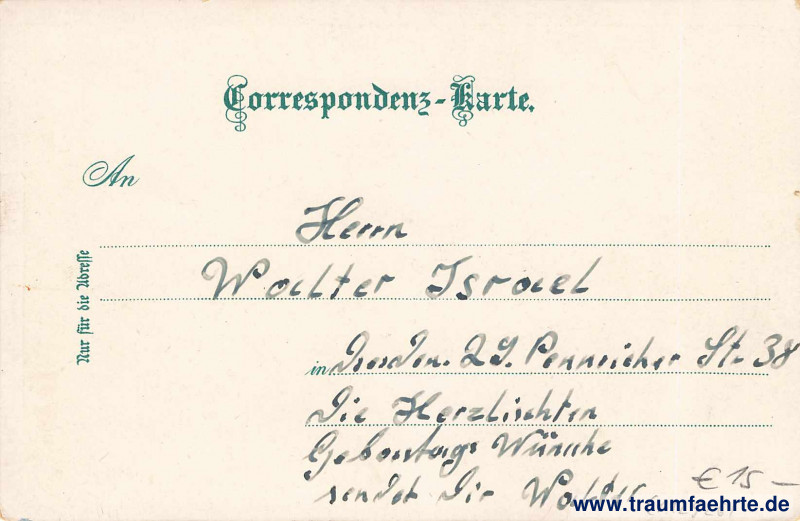 Correspondenz-Karte.
An
Herrn
Nur für die Adresse
Walter Israel
in Dresden. 29. Pennricher St. 38
Die Herzlichsten
Geburtags Wünsche
sendet Dir Walter
€ 15 —
www.traumfaehrte.de